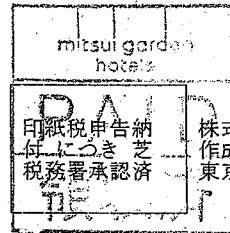 mitsui garden
hotels
PAID
印紙税申告納 株式
付につき 芝 作成
税務署承認済 東京